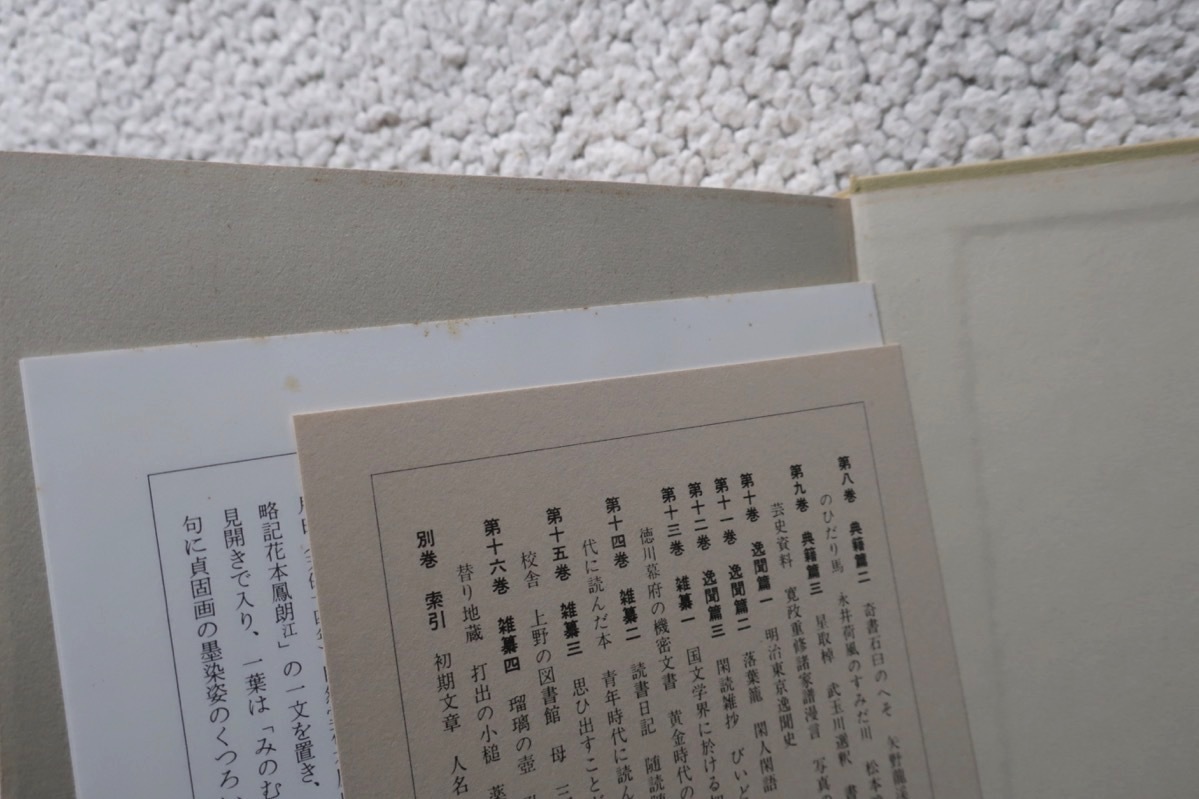 第八巻 典籍篇二 奇書石臼のへそ 矢野龍渓
のひだり馬 永井荷風のすみだ川 松本
第九巻 典籍篇三 星取棹 武玉川選釈 書
芸史資料 寛政重修諸家譜漫言 写真の
第十巻 逸聞篇一 明治東京逸聞史
第十一巻 逸聞篇二 落葉籠 閑人閑語
第十二巻 逸聞篇三 閑読雑抄 びいど
第十三巻 雑纂一 国文学界に於ける
徳川幕府の機密文書 黄金時代の
第十四巻 雑纂二 読書日記 随読
代に読んだ本 青年時代に読ん
第十五巻 雑纂三 思ひ出すことど
校舎 上野の図書館 母 三
第十六巻 雑纂四 瑠璃の壺
替り地蔵 打出の小槌 薬
別巻 索引 初期文章 人名
略記花本鳳朗江」の一文を置き、
見開きで入り、一葉は「みのむ
句に貞固画の墨染姿のくつろ